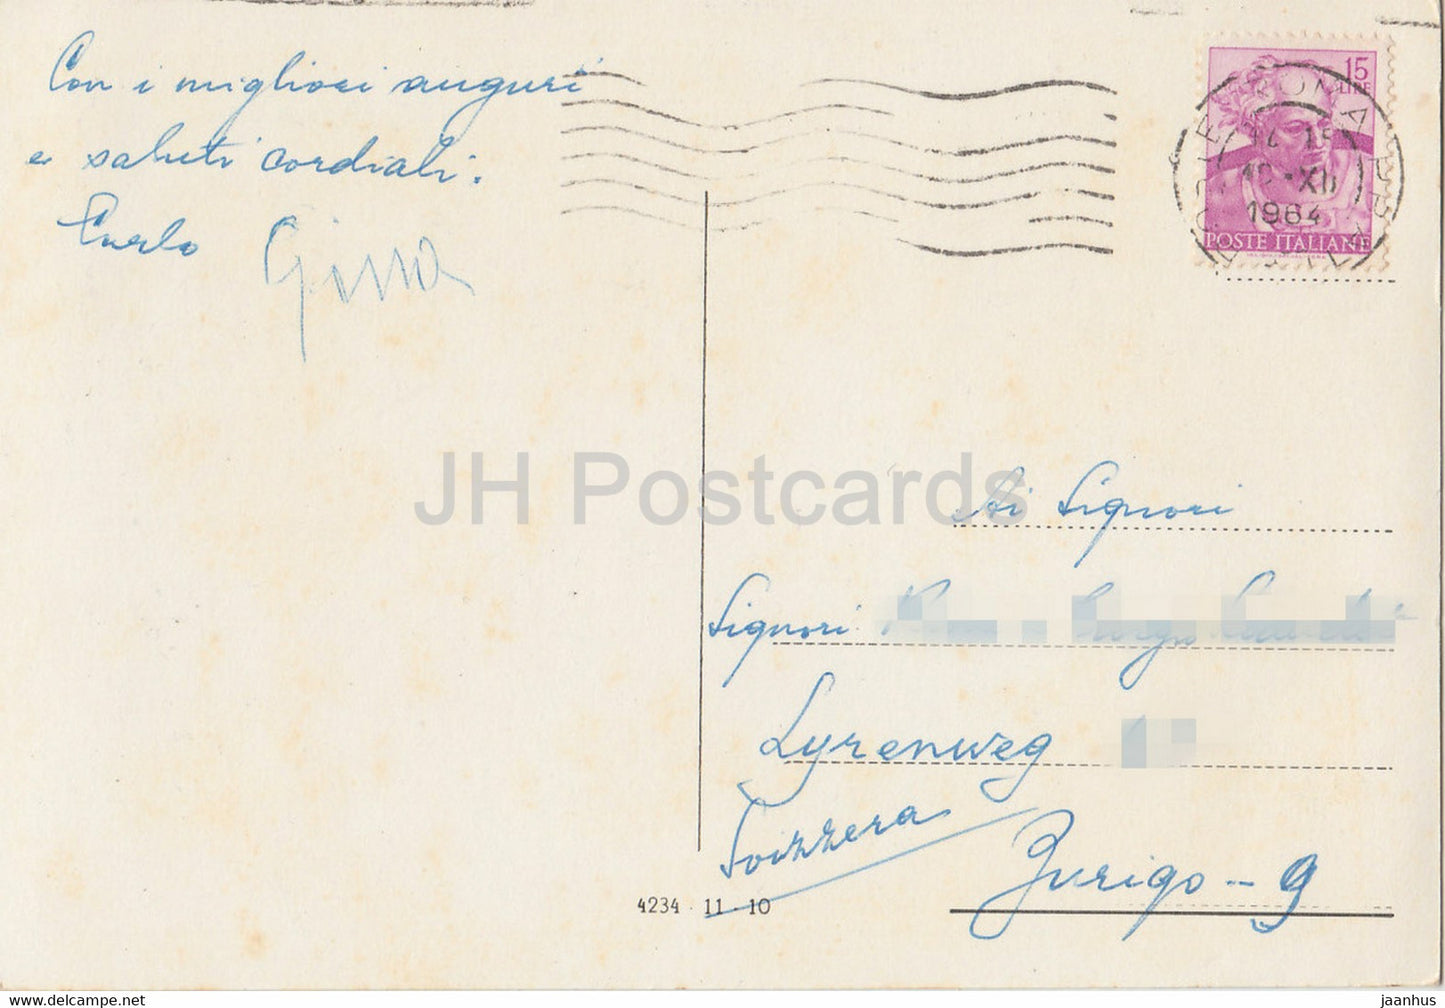 Con i migliori auguri
e saluti cordiali.
Carlo Gina
15
LIRE
ROMA
XII
1964
POSTE ITALIANE
JH Postcards
Ai Signori
Signori
Lyrenweg
Svizzera
Zurigo - 9
4234 - 11 - 10
https://www.delcampe.net
jaanhus